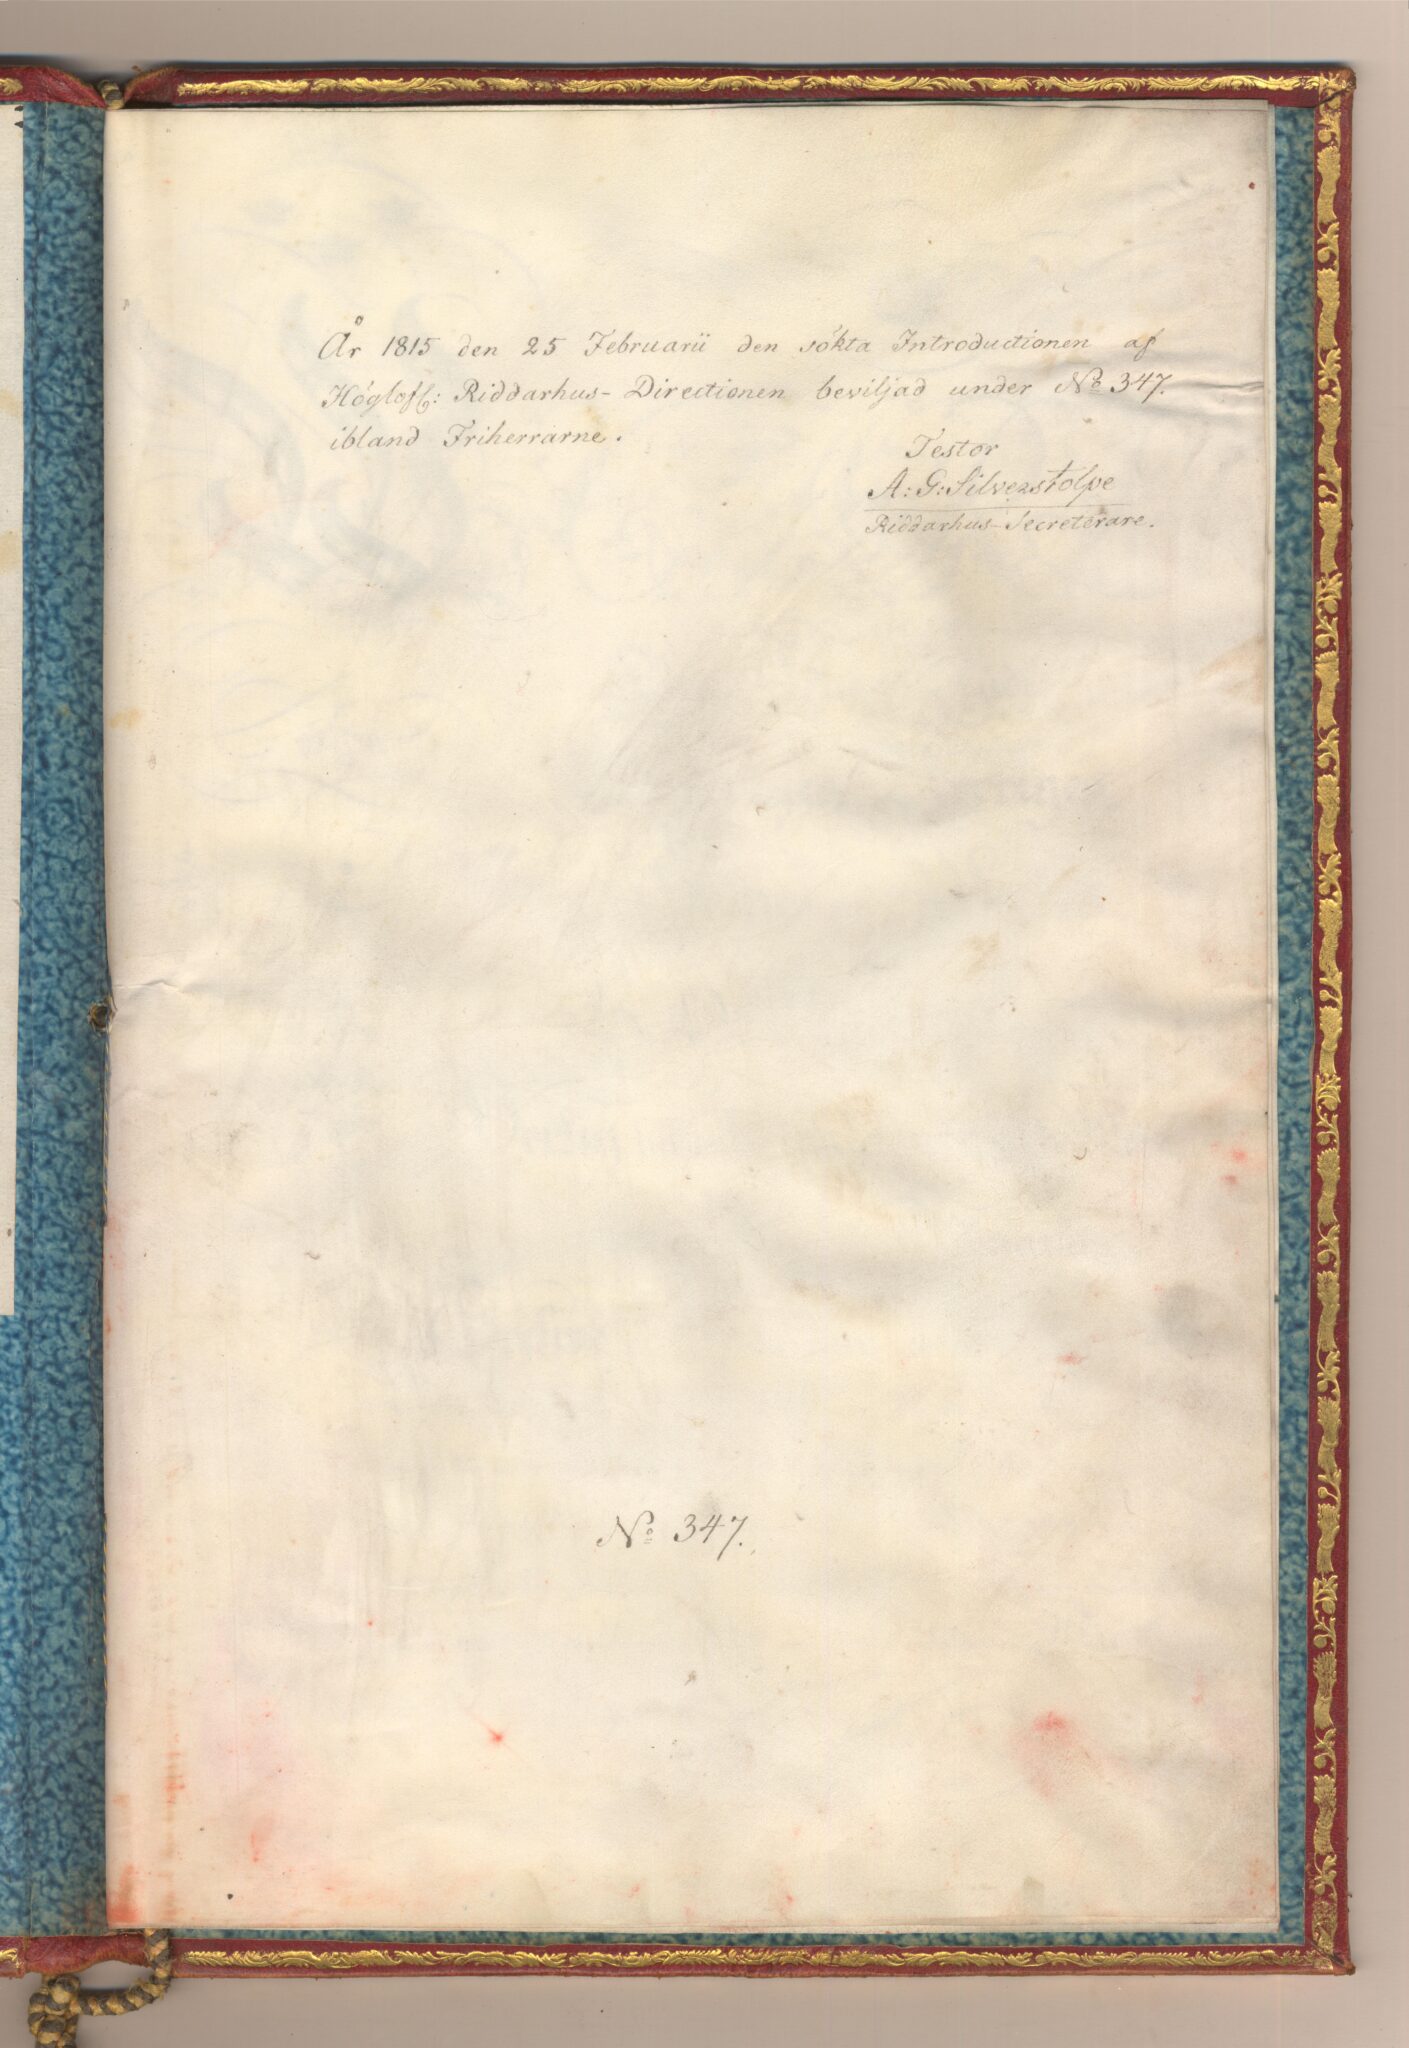 År 1815 den 25 Februarii den sökta Introductionen af
Höglofl: Riddarhus-Directionen beviljad under No 347.
ibland Friherrarne.
Testor
A: G: Silverstolpe
Riddarhus-Secreterare.
No 347.